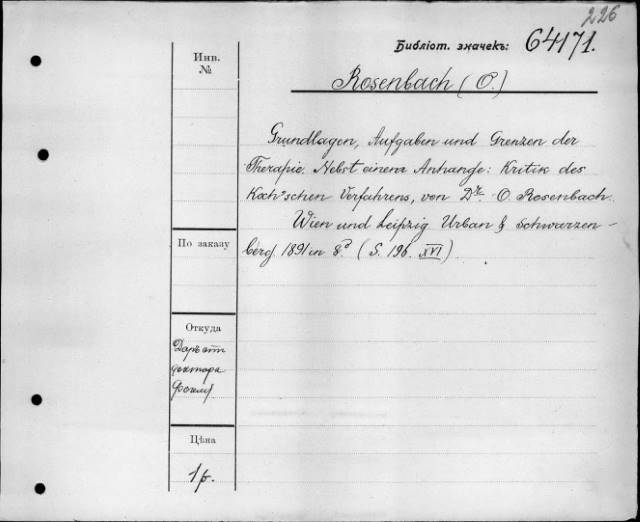 226
Библіот. значекъ: 64171.
Инв.
№
Rosenbach (O.)
Grundlagen, Aufgaben und Grenzen der
Therapie. Nebst einem Anhange: Kritik des
Koch'schen Verfahrens, von Dr. O Rosenbach.
Wien und Leipzig. Urban & Schwarzen-
berg. 1891 in 8º. (S. 196. XVI)
По заказу
Откуда
Даръ отъ
доктора
Цѣна
1 р.